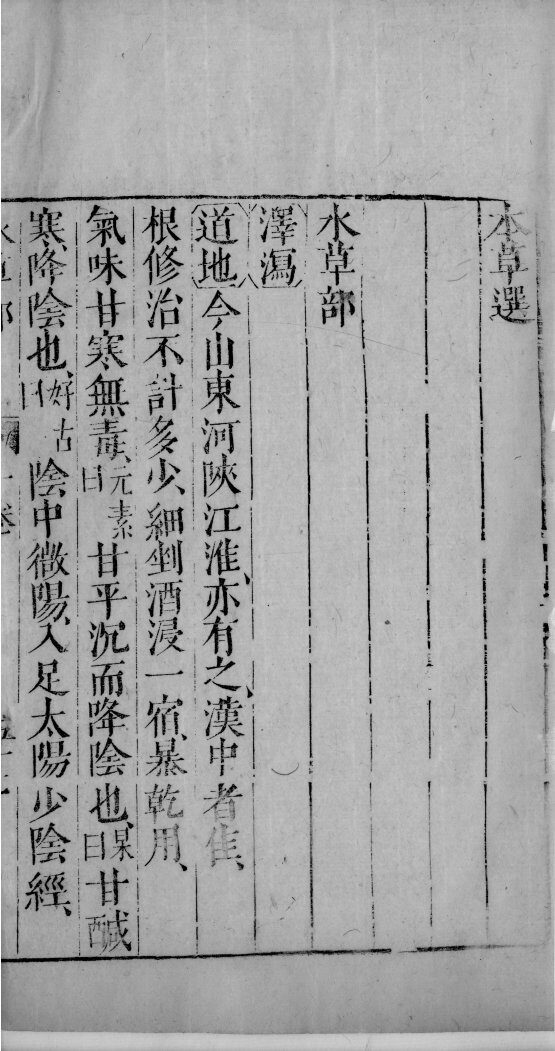 本草選
水草部
澤瀉
道地今山東河陜江淮、亦有之、漢中者隹、
根修治不計多少、細剉酒浸一宿、暴乾用、
氣味甘寒無毒、元素曰甘平沉而降陰也、杲曰甘醎
寒、降陰也、好古曰陰中微陽、入足太陽少陰經、